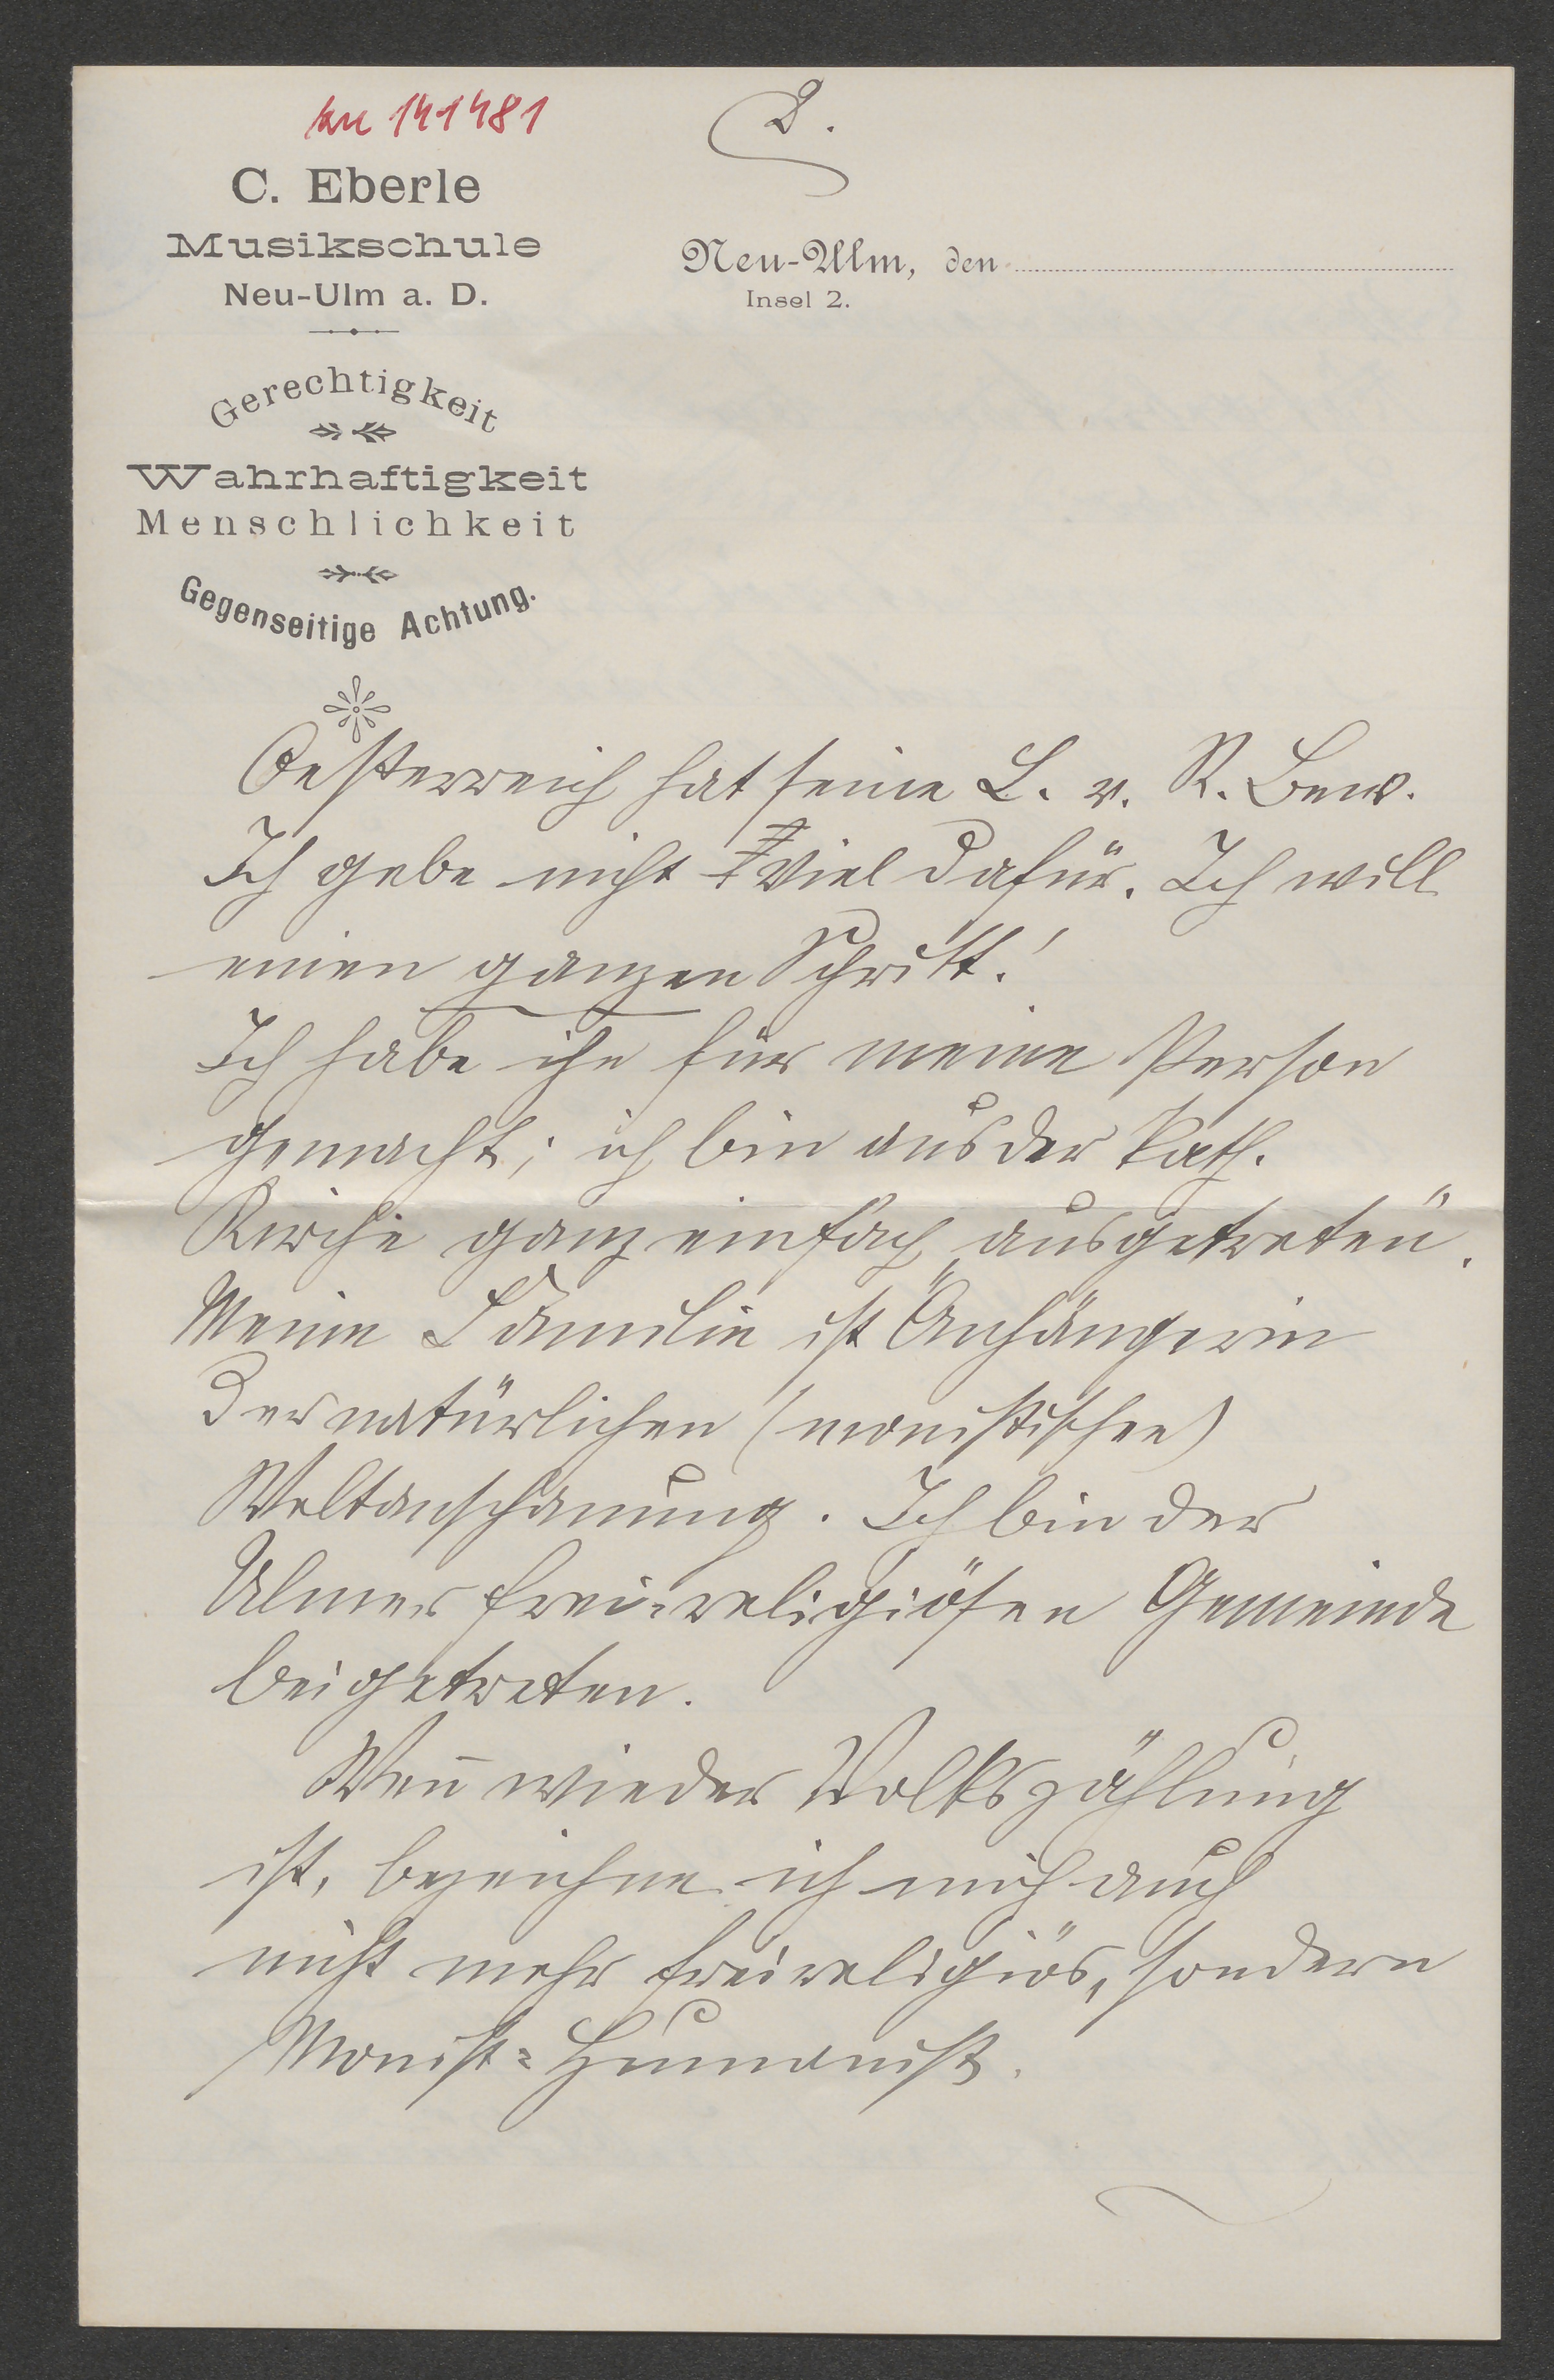 zu 141481
2.
C. Eberle
Musikschule
Neu-Ulm a. D.
Neu-Ulm, den
Insel 2.
Gerechtigkeit
Wahrhaftigkeit
Menschlichkeit
Gegenseitige Achtung.
Oesterreich hat seine L. v. R. Bew.
Ich gebe nicht viel dafür. Ich will
einen ganzen Schritt!
Ich habe ihn für meine Person
gemacht; ich bin aus der kath.
Kirche ganz einfach „ausgetreten".
Meine Familie ist Anhängerin
der natürlichen (monistischen)
Weltanschauung. Ich bin der
Ulmer frei-religiösen Gemeinde
beigetreten.
Wen̄ wieder Volkszählung
ist, bezeichne ich mich auch
nicht mehr freireligiös, sondern
Monist-Humanist.